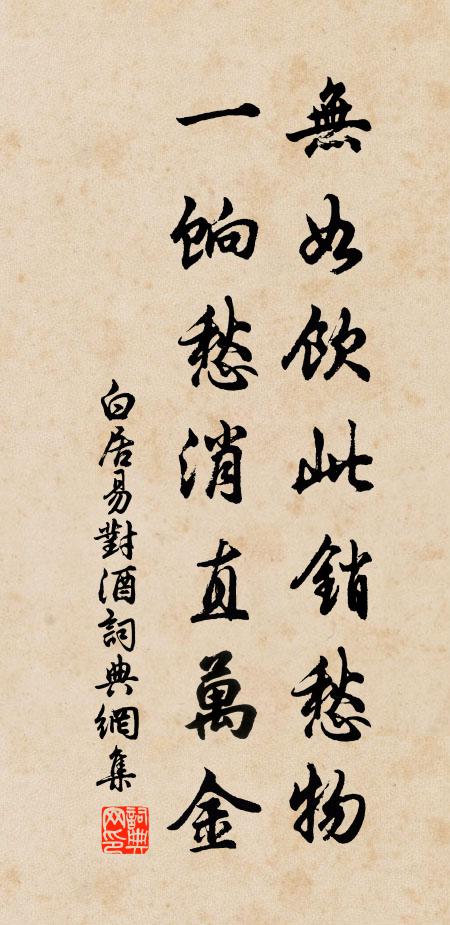 無如飲此銷愁物
一餉愁消直萬金
白居易對酒詞典網集
詞典網印